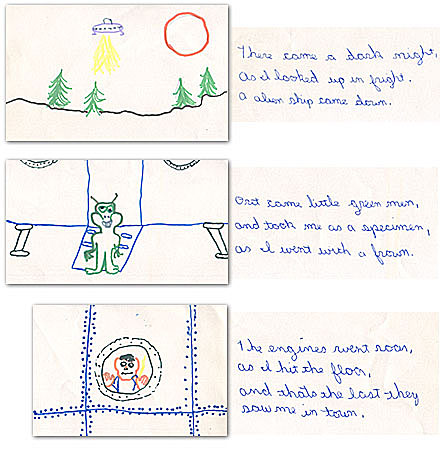 There came a dark night,
as I looked up in fright.
a alien ship came down.
Out came little green men,
and took me as a specimen,
as I went with a frown.
The engines went roar,
as I hit the floor,
and thats the last they
saw me in town.